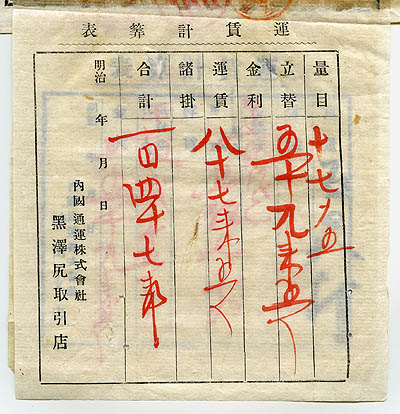 運賃計算表
量目 十七 五
立替 五十九銭五
金利
運賃 八十七銭五
諸掛
合計 一円四十七銭
明治 年 月 日
內國通運株式會社
黑澤尻取引店